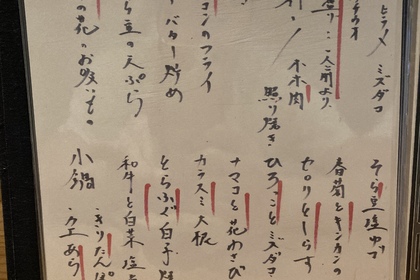 ヒラメ ミズダコ
盛り 二人前より
ホホ肉
照り焼き
コンのフライ
バター炒め
ら豆の天ぷら
の花のお吸いもの
そら豆塩ゆで
春菊とキンカンの
セロリとしらす
ひろことミズダコ
ナマコと花わさび
カラスミ大根
とらふぐ白子焼
和牛と白菜塩
きりたんぽ
小鍋